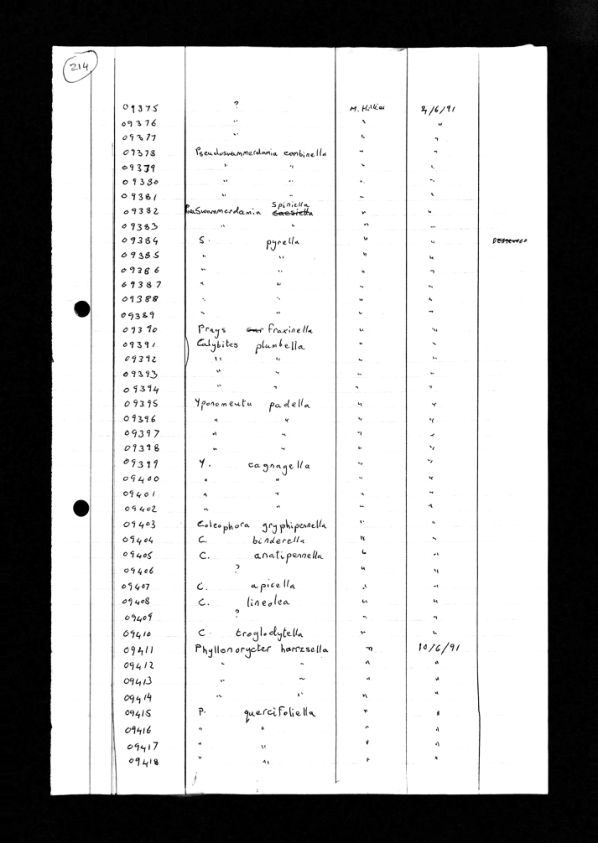 214
09375 ? M. Hilker 3/6/91
09376 " " "
09377 " " "
09378 Pseudoswammerdamia combinella " "
09379 " " " "
09380 " " " "
09381 " " " "
09382 ParaSwammerdamia spiniella caesiella " "
09383 " " " "
09384 S. pyrella " "
09385 " " " "
09386 " " " "
09387 " " " "
09388 " " " "
09389 " " " "
09390 Prays fraxinella " "
09391 Calybites plantella " "
09392 " " " "
09393 " " " "
09394 " " " "
09395 Yponomeuta padella " "
09396 " " " "
09397 " " " "
09398 " " " "
09399 Y. cagnagella " "
09400 " " " "
09401 " " " "
09402 " " " "
09403 Coleophora gryphipennella " "
09404 C. binderella " "
09405 C. anatipennella " "
09406 ? " "
09407 C. apicella " "
09408 C. lineolea " "
09409 ? " "
09410 C. troglodytella " "
09411 Phyllonorycter harrisella " 10/6/91
09412 " " " "
09413 " " " "
09414 " " " "
09415 P. quercifoliella " "
09416 " " " "
09417 " " " "
09418 " " " "